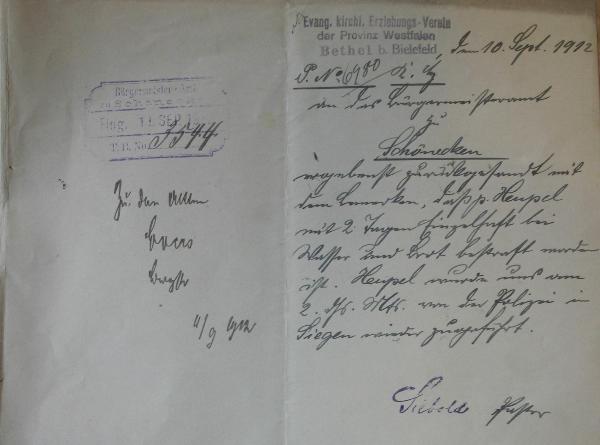 Bürgermeister-Amt
zu Schöneck
Eing. 11. SEP. 1
T.B. No. 3544
Zu den Akten
11/9 1912
Evang. kirchl. Erziehungs-Verein
der Provinz Westfalen
Bethel b. Bielefeld, den 10. Sept. 1912
P. No. 6980
an das Bürgermeisteramt
zu
Schönecken
ergebenst zurückgesandt mit
dem Bemerken, daß p. Heupel
mit 2 Tagen Einzelhaft bei
Wasser und Brot bestraft worden
ist. Heupel wurde uns am
2. ds. Mts. von der Polizei in
Siegen wieder zugeführt.
Siebold Pastor